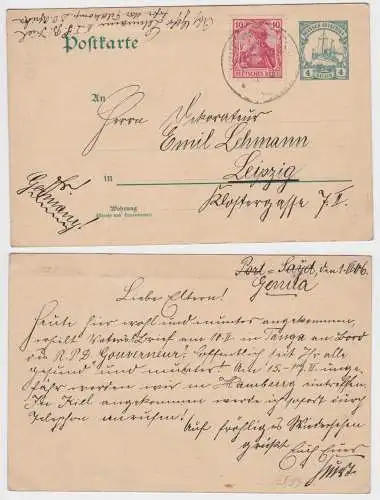 Postkarte
10 10
DEUTSCHES REICH
4 4
An
Herrn Dekorateur
Emil Lehmann
in Leipzig
Klostergasse 7. II.
Wohnung
(Straße und Hausnummer)
Germany!
Port-Sayd, den
Genua
Liebe Eltern!
Heute hier wohl und munter angekommen,
erhielt Vaters Brief am in Tanga an Bord
du R.P.D. Gouverneur. Hoffentlich seit Ihr alle
gesund und munter! Am 15. unge-
fähr werden wir in Hamburg eintreffen.
In Kiel angekommen werde ich sofort durch
Telephon anrufen! Auf fröhliges Wiedersehen
grüßt Euch Euer
Kurt